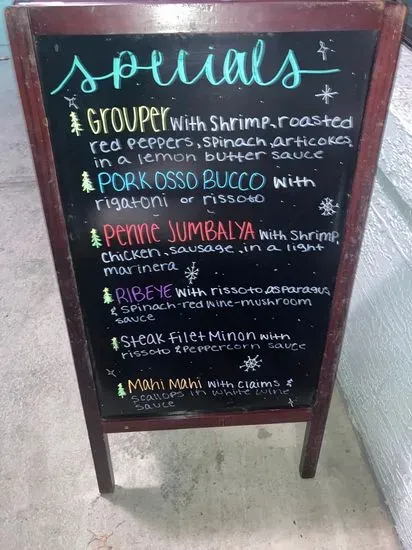 specials
GROUPER with Shrimp, roasted
red peppers, spinach, articokes
in a lemon butter sauce
PORK OSSO BUCCO with
rigatoni or rissoto
Penne JUMBALYA with Shrimp,
chicken, sausage, in a light
marinera
RIBEYE with rissoto, asparagus
& spinach-red wine-mushroom
sauce
Steak Filet Minon with
rissoto & peppercorn sauce
Mahi Mahi with claims &
scallops in white wine
sauce